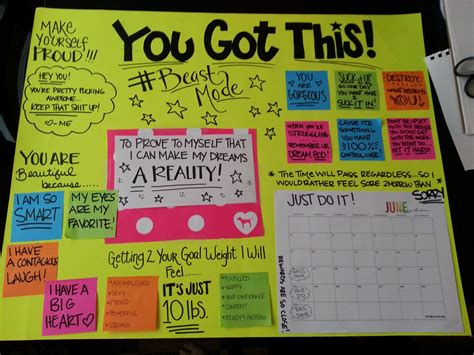 MAKE
YOURSELF
PROUD!!!
YOU GOT THIS!
#BEAST
MODE
HEY YOU!
YOU'RE PRETTY FUCKING
AWESOME...
KEEP THAT SHIT UP!
♡-ME
YOU
ARE
GORGEOUS
SUCK IT UP
SO ONE DAY
YOU WON'T HAVE 2
SUCK IT IN!
DESTROY
WHAT DESTROYS
YOU!
WHEN YOU'RE
STRUGGLING
REMEMBER UR
DREAM BOD!
CAUSE ITS
SOMETHING
YOU HAVE
100%
CONTROL OVER!
TO PROVE TO MYSELF THAT
I CAN MAKE MY DREAMS
A REALITY!
YOU ARE
Beautiful
because.....
I AM SO
SMART
MY EYES
ARE MY
FAVORITE!
I HAVE
A CONTAGIOUS
LAUGH!
I HAVE A
BIG
HEART♡
* THE TIME WILL PASS REGARDLESS...SO I
WOULD RATHER FEEL SORE 2MORROW THAN
SORRY
Getting 2 Your Goal Weight I Will
Feel.....
* ACCOMPLISHED
* SEXY
* PROUD
* POWERFUL
* STRONG
IT'S JUST
10 lbs.
* FULFILLED
* HAPPY
* SELF CONFIDENCE
* CONTENT
JUST DO IT!
JUNE
REWARDS ARE SO CLOSE!